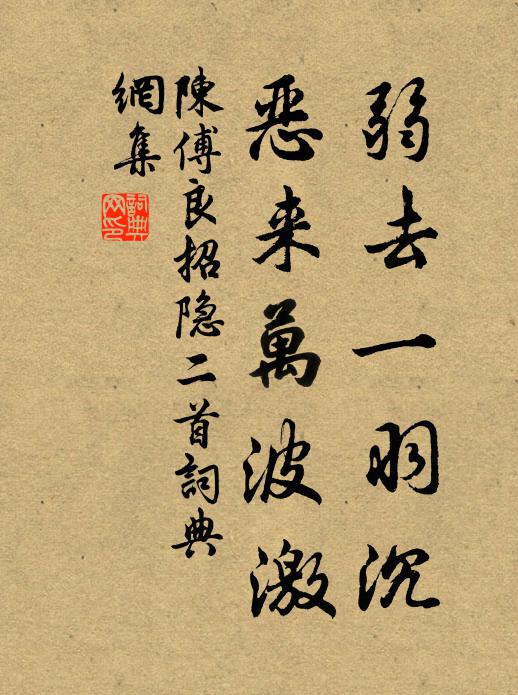 弱去一羽沉
恶来萬波激
陳傅良招隐二首詞典
網集
詞典网印